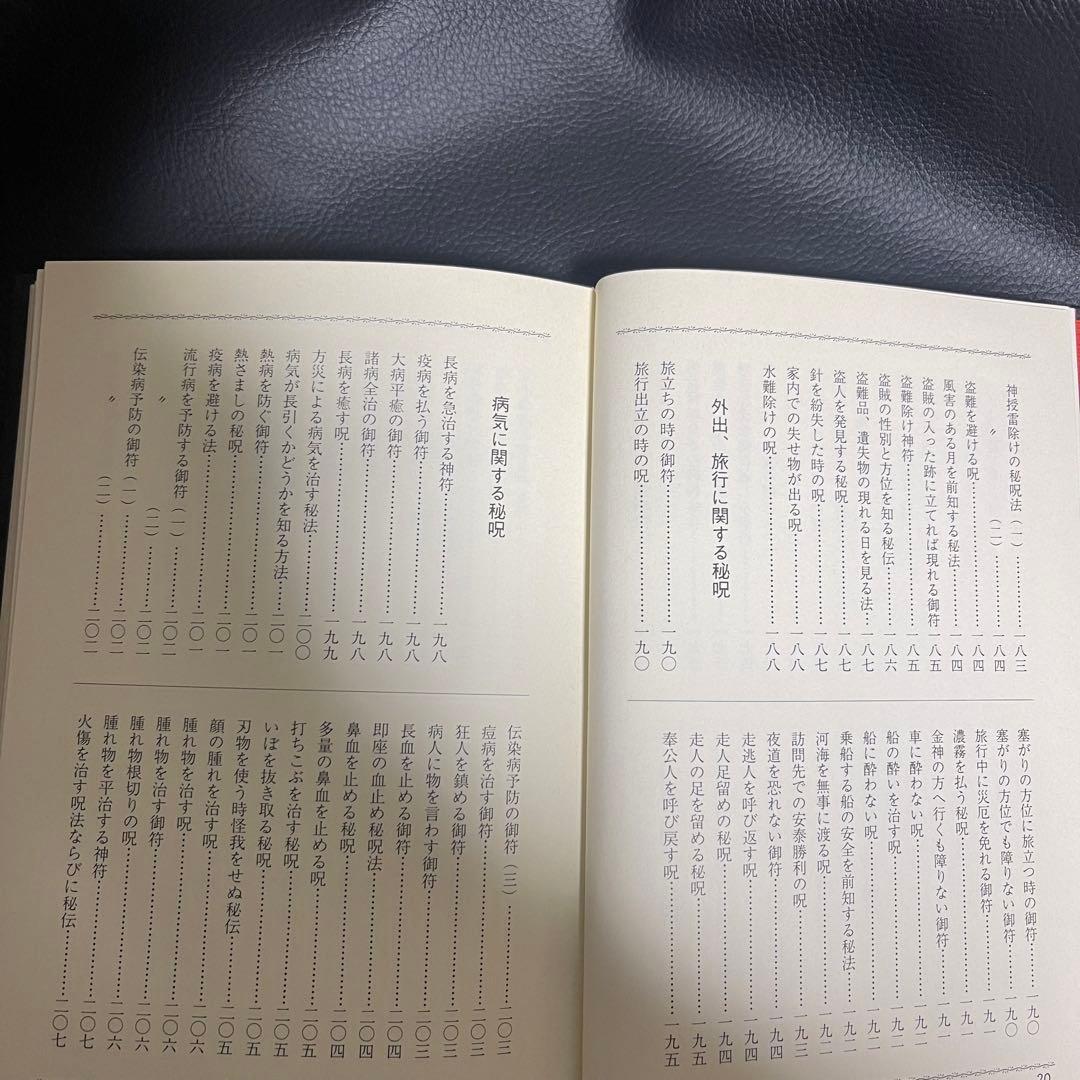 神授雷除けの秘呪法(一)……一八三
〃(二)……一八四
盗難を避ける呪……一八四
風害のある月を前知する秘法……一八四
盗賊の入った跡に立てれば現れる御符……一八五
盗難除け神符……一八五
盗賊の性別と方位を知る秘伝……一八六
盗難品、遺失物の現れる日を見る法……一八七
盗人を発見する秘呪……一八七
針を紛失した時の呪……一八七
家内での失せ物が出る呪……一八八
水難除けの呪……一八八
外出、旅行に関する秘呪
旅立ちの時の御符……一九〇
旅行出立の時の呪……一九〇
塞がりの方位に旅立つ時の御符……一九〇
塞がりの方位でも障りない御符……一九〇
旅行中に災厄を免れる御符……一九一
濃霧を払う秘呪……一九一
金神の方へ行くも障りない御符……一九一
車に酔わない呪……一九二
船の酔いを治す呪……一九二
船に酔わない呪……一九二
乗船する船の安全を前知する秘法……一九二
河海を無事に渡る呪……一九二
訪問先での安泰勝利の呪……一九三
夜道を恐れない御符……一九四
走逃人を呼び返す呪……一九四
走人足留めの秘呪……一九四
走人の足を留める秘呪……一九五
奉公人を呼び戻す呪……一九五
20
病気に関する秘呪
長病を急治する神符……一九八
疫病を払う御符……一九八
大病平癒の御符……一九八
諸病全治の御符……一九八
長病を癒す呪……一九九
方災による病気を治す秘法……二〇〇
病気が長引くかどうかを知る方法……二〇一
熱病を防ぐ御符……二〇一
熱さましの秘呪……二〇一
疫病を避ける法……二〇一
流行病を予防する御符(一)……二〇二
〃(二)……二〇二
伝染病予防の御符(一)……二〇二
〃(二)……二〇二
伝染病予防の御符(三)……二〇三
痘病を治す御符……二〇三
狂人を鎮める御符……二〇三
病人に物を言わす御符……二〇三
長血を止める御符……二〇四
即座の血止め秘呪法……二〇四
鼻血を止める秘呪……二〇四
多量の鼻血を止める呪……二〇四
打ちこぶを治す秘呪……二〇五
いぼを抜き取る秘呪……二〇五
刃物を使う時怪我をせぬ秘伝……二〇五
顔の腫れを治す呪……二〇六
腫れ物を治す呪……二〇六
腫れ物を治す御符……二〇六
腫れ物根切りの呪……二〇六
腫れ物を平治する神符……二〇七
火傷を治す呪法ならびに秘伝……二〇七